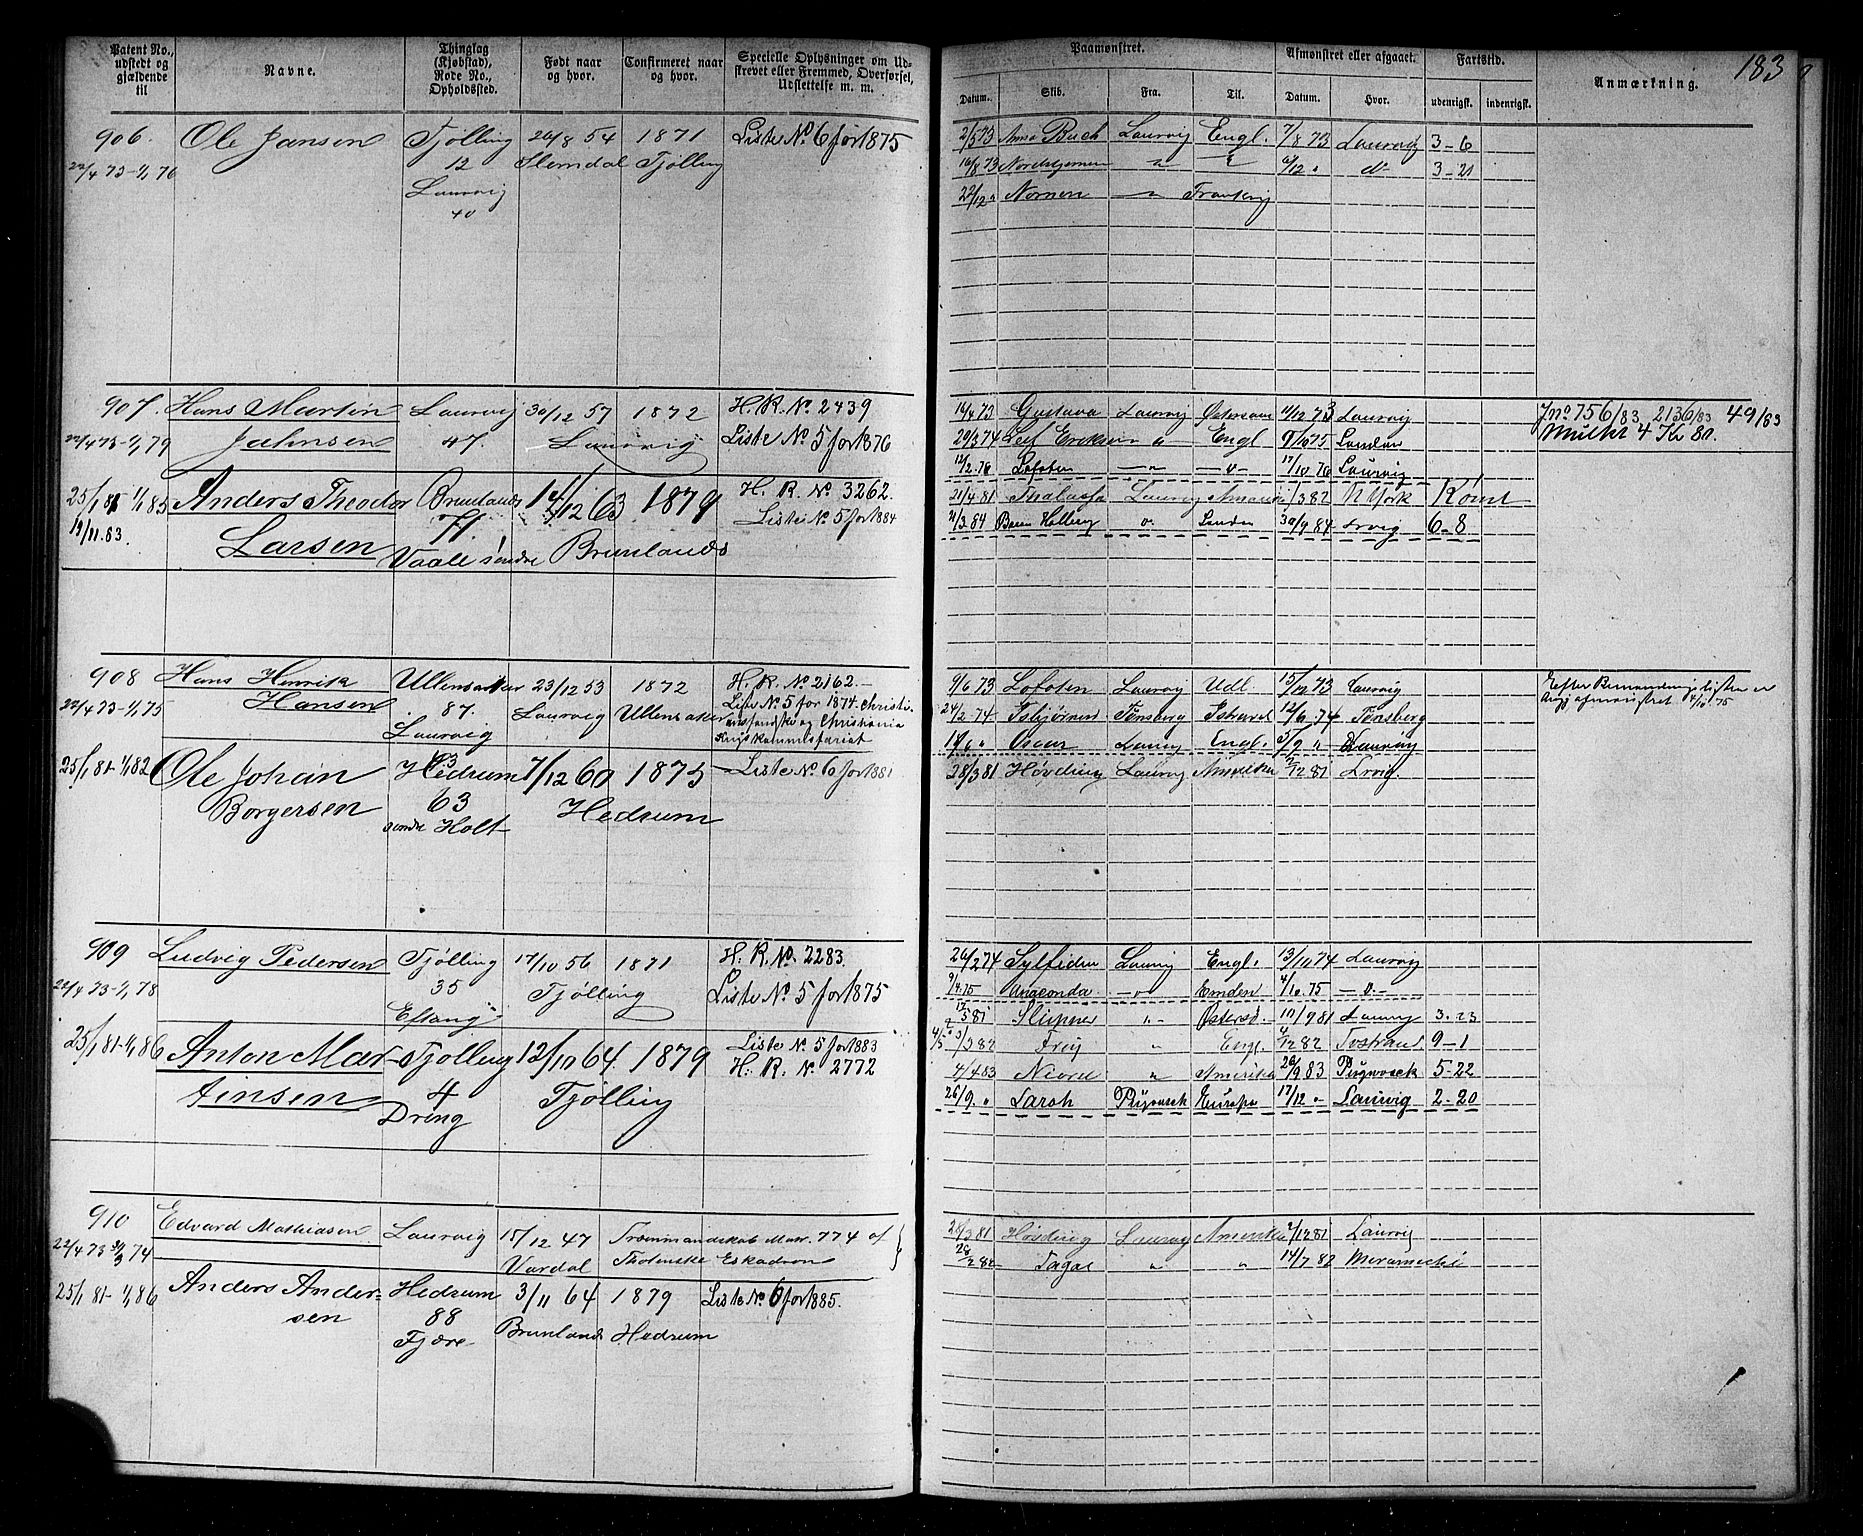 183
Patent No., udstedt og gjældende til
Navne.
Thinglag (Kjøbstad), Rode No., Opholdssted.
Født naar og hvor.
Confirmeret naar og hvor.
Specielle Oplysninger om Udskrevet eller Fremmed, Overførsel, Udslettelse m. m.
Paamønstret.
Afmønstret eller afgaaet.
Fartstid.
Anmærkning.
Datum.
Skib.
Fra.
Til.
Datum.
Hvor.
udenrigsk.
indenrigsk.
906. Ole Jansen Tjølling 26/8 54 1871 Liste No 6 for 1875
22/4 73-1/1 76 12 Slemdal Tjølling
Laurvig
40
2/5 73 Anna Buch Laurvig Engl. 7/8 73 Laurvig 3-6
16/8 73 Nordstjernen " " 6/12 " do 3-21
22/12 " Nornen " Frankrig
907. Hans Martin Laurvig 30/12 57 1872 H. R. No 2439
22/4 73-1/1 79 Jahnsen 47. Laurvig Liste No 5 for 1876
25/1 81 1/1 85 Anders Theodor Brunlanæs 14/12 63 1879 H. R. No 3262.
19/11.83. Larsen 71. Brunlanæs Liste No 5 for 1884
Vaale søndre
16/4 73 Gustava Laurvig 11/12 73 Laurvig Jno 756/83 2136/83 49/83
29/3 74 Leif Erikson " Engl 9/10 75 London Mulkt 4 Kr 80.
12/2.76 Lofoten " " 17/10 76 Laurvig
21/4 81 Thalassa Laurvig 1/3 82 N York Rømt
Holberg " London 30/9 84 Lrvig 6-8
908 Hans Henrik Ullensaker 23/12 53 1872 H. R. No 2162.
22/4 73-1/1 75 Hansen 87. Laurvig Ullensaker Liste No 5 for 1874. Christi-
Laurvig ansands og Christiania
93 Krigskommissariat
25/1 81-1/1 82 Ole Johan Hedrum 7/12 60 1875 Liste No 6 for 1881
Borgersen 63 Hedrum
søndre Holt
9/6 73 Lofoten Laurvig Udl. 15/12 73 Laurvig
24/2 74 Isbjørnen Tønsberg Ishavet 12/6.74 Tønsberg
Oscar Laurvig Engl. 5/9 " Laurvig
28/3 81 Høvding Laurvig Amerika 2/12 81 Lrvig.
909 Ludvig Pedersen Tjølling 17/10 56 1871 H. R. No. 2283.
22/4 73-1/1 78 35 Tjølling Liste No 5 for 1875
Eftang
25/1 81-1/1 86 Anton Mar- Tjølling 12/10 64. 1879 Liste No 5 for 1883
tinsen 4 Tjølling H. R. No 2772
Dring
26/2 74 Sylfiden Laurvig Engl. 13/11 74 Laurvig
9/4.75 Anaconda " Emden 4/10.75 "
Sleipner " Østersø. 10/9 81 Laurvig 3.23
Frey " Engl. 4/12 82 9-1
4/4 83 Niord " Amerika 26/9 83 5-22
26/9 " Sarah Europa 17/12 " Laurvig 2-20
910 Edvard Mathiasen Laurvig 15/12 47 Trommandskab Matr. 774 af
22/4 73 74 Vardal Thotenske Eskadron
25/1 81-1/1 86 Anders Ander- Hedrum 3/11 64 1879 Liste No 6 for 1885.
sen 88 Brunlanæs Hedrum
Fjære
28/3 81 Høvding Laurvig Amerika 2/12 81 Laurvig
28/2 82 " " 14/7 82 Meramechi